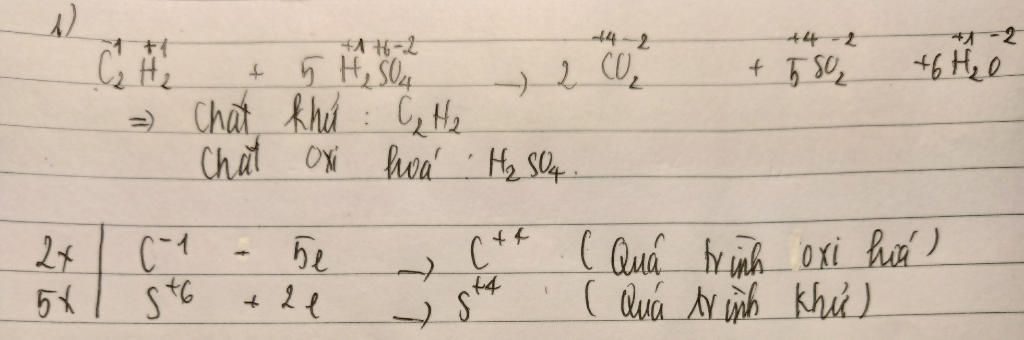 1)
-1 +1 +1 +6 -2 +4 -2 +4 -2 +1 -2
C₂ H₂ + 5 H₂SO₄ → 2 CO₂ + 5 SO₂ + 6 H₂O
⇒ Chất khử : C₂H₂
Chất oxi hoá : H₂SO₄.
2x | C⁻¹ - 5e → C⁺⁴ (Quá trình oxi hoá)
5x | S⁺⁶ + 2e → S⁺⁴ (Quá trình khử)